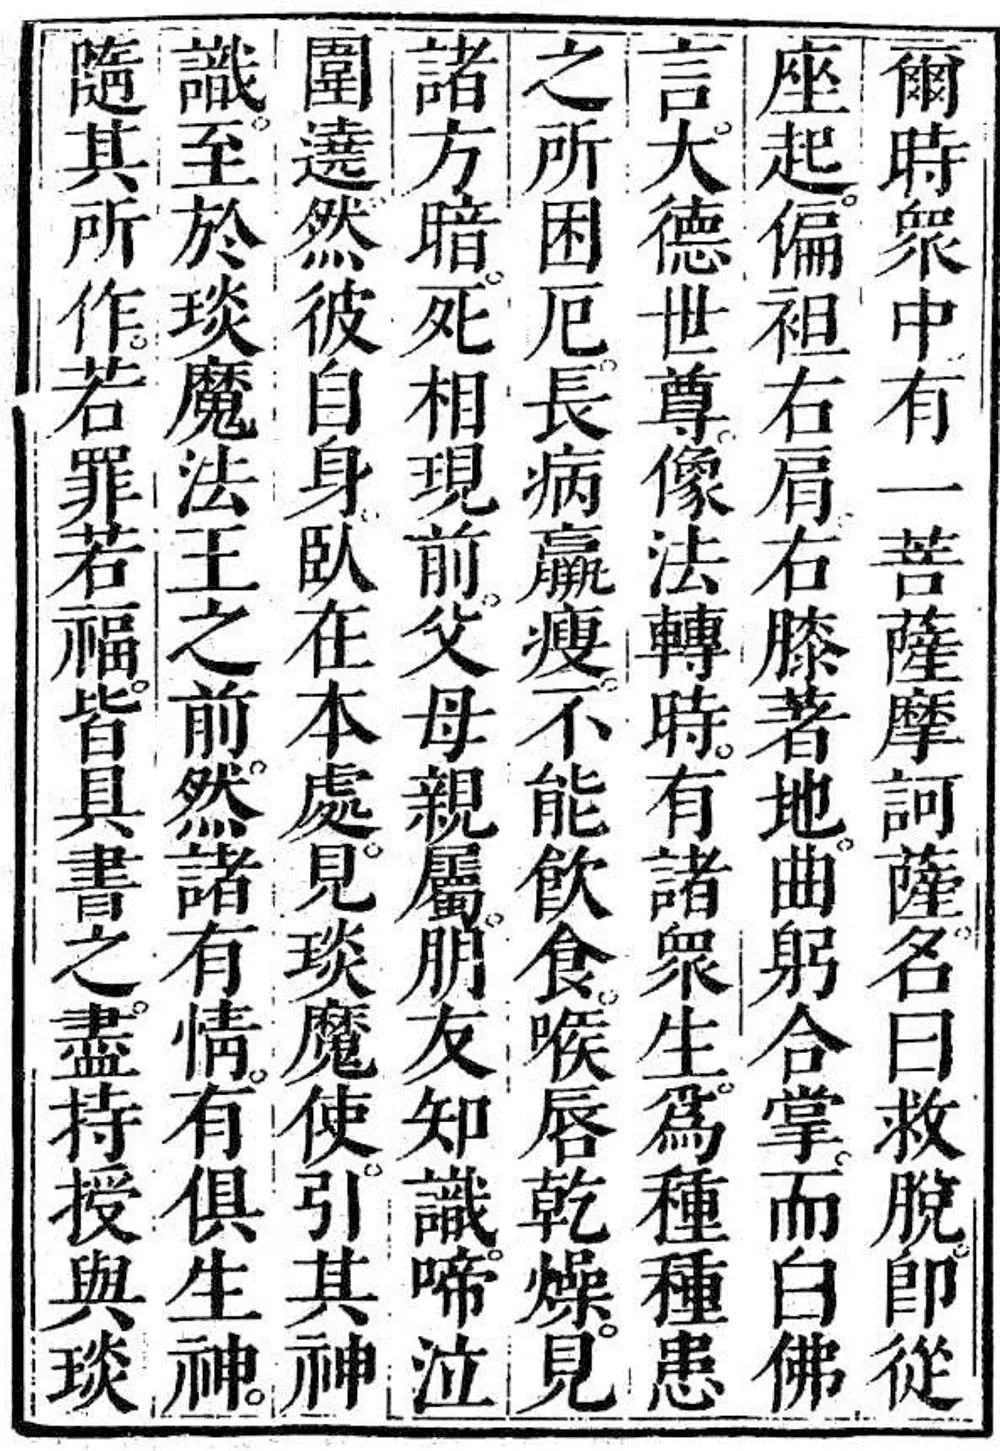 爾時衆中有一菩薩摩訶薩。名曰救脫。卽從
座起。偏袒右肩。右膝著地。曲躬合掌。而白佛
言。大德世尊。像法轉時。有諸衆生。爲種種患
之所困厄。長病羸瘦。不能飲食。喉唇乾燥。見
諸方暗。死相現前。父母親屬。朋友知識。啼泣
圍遶。然彼自身。臥在本處。見琰魔使。引其神
識。至於琰魔法王之前。然諸有情。有俱生神。
隨其所作。若罪若福。皆具書之。盡持授與琰